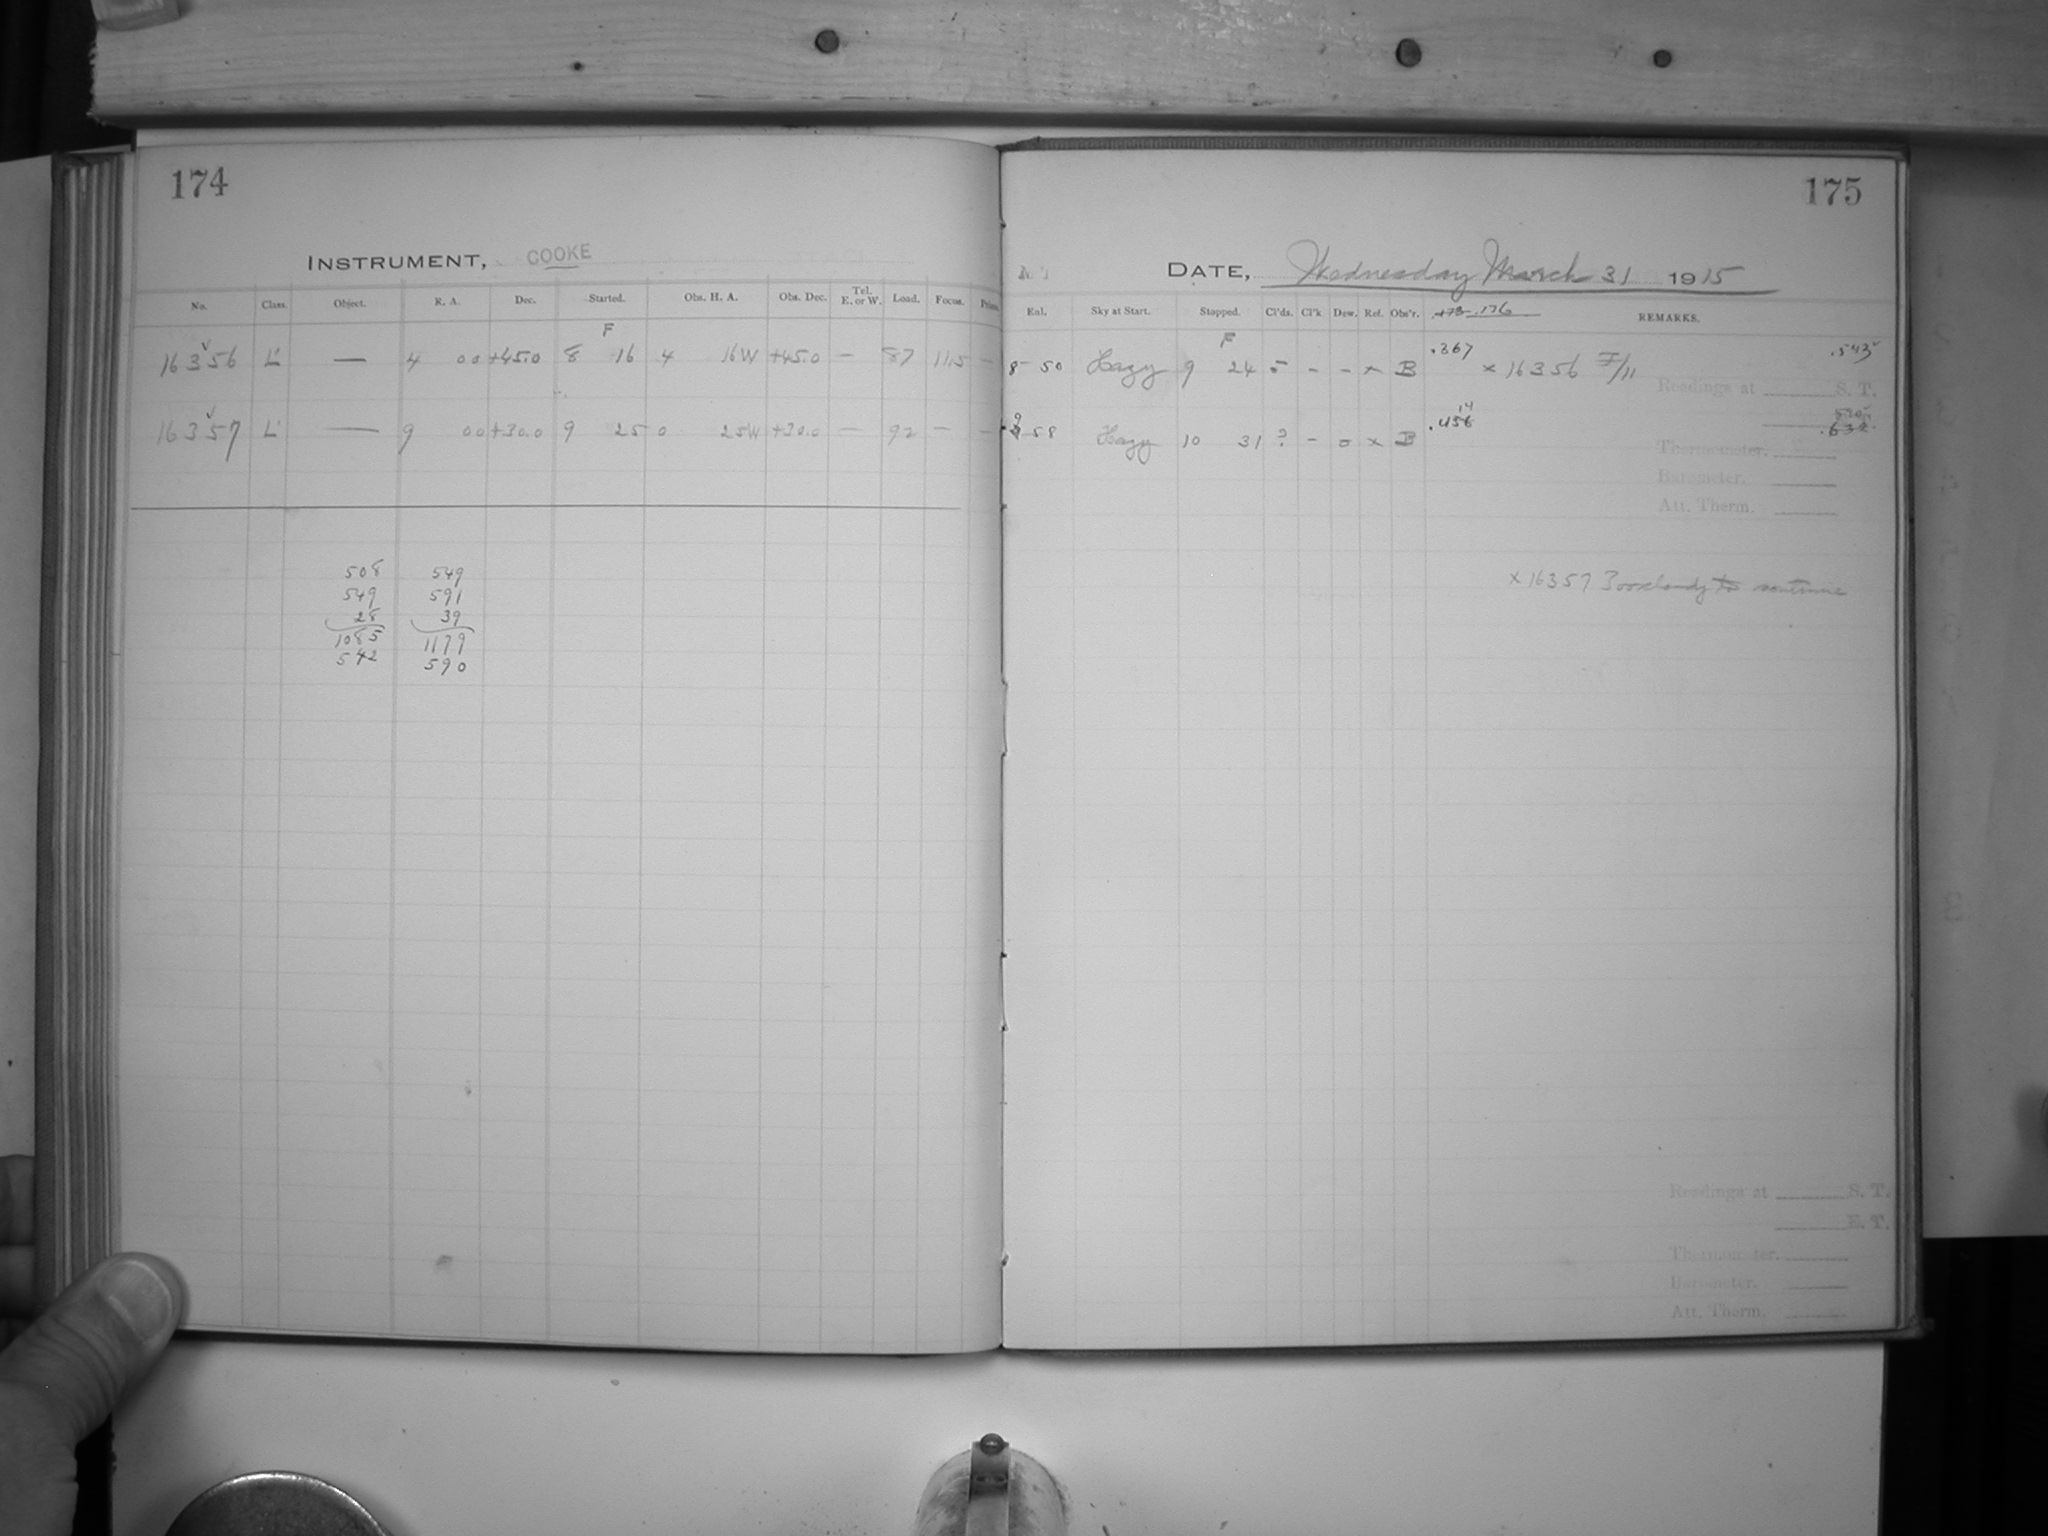 174
INSTRUMENT, COOKE
No. Class. Object. R. A. Dec. Started. Obs. H. A. Obs. Dec. Tel. E. or W. Load. Focus.
F
16356 L — 4 00 +45.0 8 16 4 16W +45.0 — 87 11.5 —
16357 L — 9 00 +30.0 9 25 0 25W +30.0 — 92 — —
508 549
549 591
28 39
1085 1179
542 590
175
DATE, Wednesday March 31 1915
Ent. Sky at Start. Stopped. Cl'ds. Cl'k. Dew. Ref. Obs'r. .176 REMARKS.
F
8 50 Hazy 9 24 5 – – x B .367 x 16356 F/11 .543
Readings at S. T.
9 58 Hazy 10 31 ? – 0 x B .456 .632
Thermometer.
Barometer.
Att. Therm.
x 16357 to continue
Readings at S. T.
E. T.
Thermometer.
Barometer.
Att. Therm.